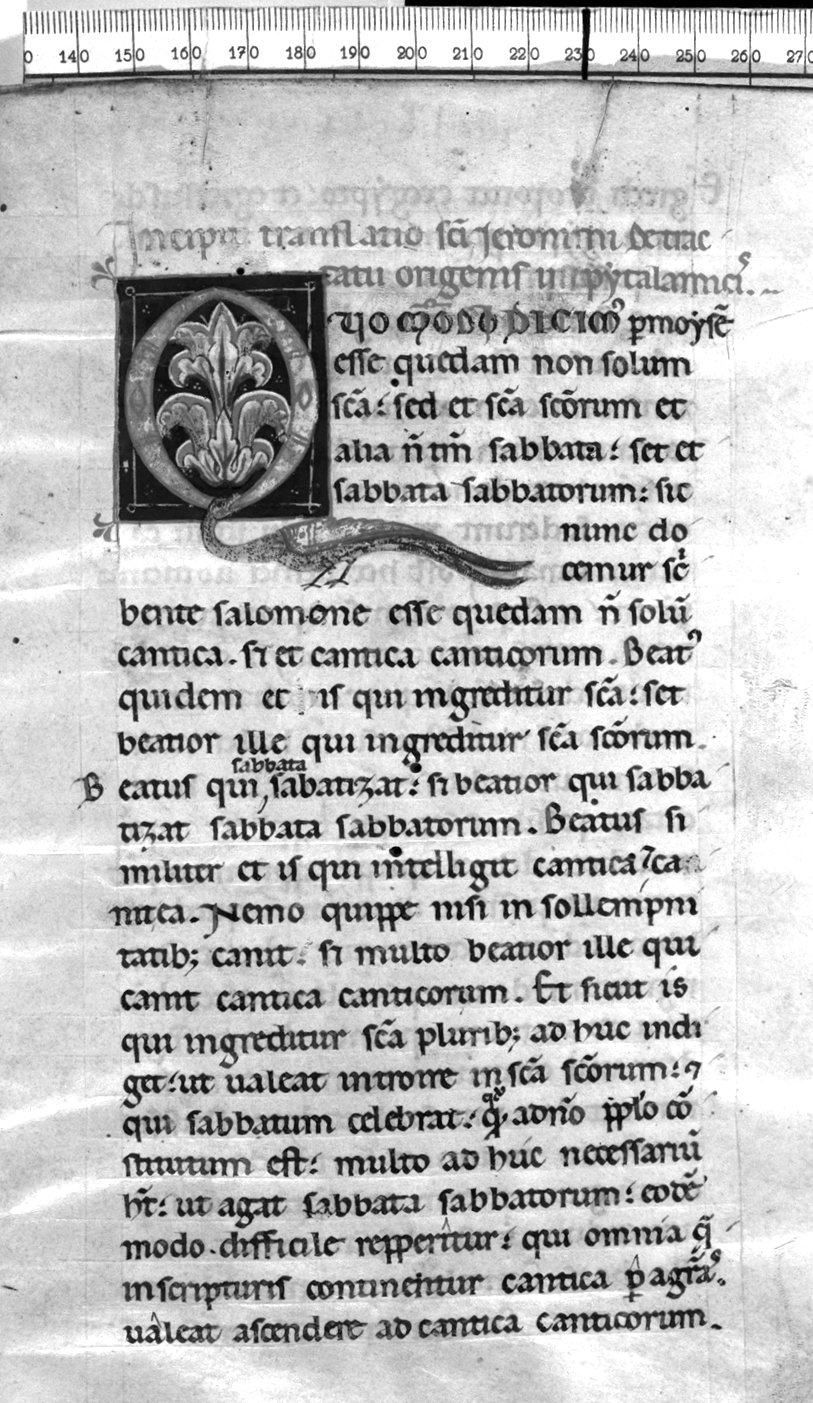 0 140 150 160 170 180 190 200 210 220 230 240 250 260 270
Incipit translatio sci Jeronimi de trac
tatu origenis in epytalamiu
QVO MODO DICIM' p moysē
esse quedam non solum
scā: sed et scā scōrum et
alia ñ tm̄ sabbata: set et
sabbata sabbatorum: sic
nunc do
cemur sc̄
bente salomone esse quedam ñ solū
cantica. sꝫ et cantica canticorum. Beat'
quidem et is qui ingreditur scā: set
beatior ille qui ingreditur scā scōrum.
sabbata
Beatus qui, sabatizat: sꝫ beatior qui sabba
tizat sabbata sabbatorum. Beatus si
militer et is qui intelligit cantica ⁊ ca
ntica. Nemo quippe nisi in sollempni
tatib; canit. sꝫ multo beatior ille qui
canit cantica canticorum. Et sicut is
qui ingreditur scā plurib; ad huc indi
get: ut ualeat introire in scā scōrum: ⁊
qui sabbatum celebrat: q̄ adño pplo cō
stitutum est: multo ad huc necessariū
ht̄: ut agat sabbata sabbatorum: eodē
modo. difficile repperitur: qui omnia q̄
in scripturis continentur cantica p agrās.
ualeat ascendere ad cantica canticorum.